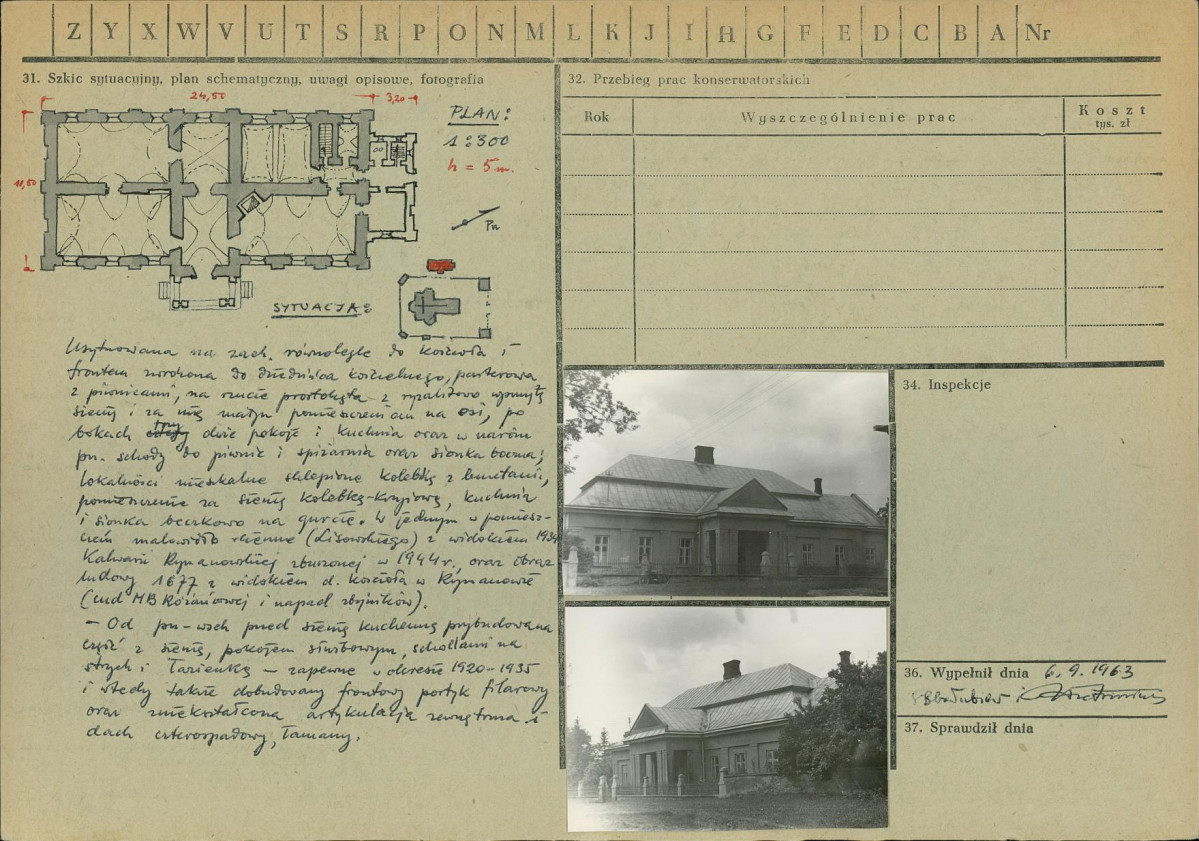 Z Y X W V U T S R P O N M L K J I H G F E D C B A Nr
31. Szkic sytuacyjny, plan schematyczny, uwagi opisowe, fotografia
24,50
3,20
11,50
PLAN:
1:300
h = 5 m.
Pn
SYTUACJA:
Usytuowana na zach. równolegle do kościoła i
frontem zwrócona do dziedzińca kościelnego, parterowa
z piwnicami, na rzucie prostokąta z ryzalitowo wysuniętą
sienią i za nią małym pomieszczeniem na osi, po
bokach dwie pokoje i kuchnia oraz w narożu
pn. schody do piwnic i spiżarnia oraz sionka boczna;
lokalności mieszkalne sklepione kolebką z lunetami,
pomieszczenie za sienią kolebką-krzyżową, kuchnia
i sionka beczkowo na gurcie. W jednym w pomiesz-
czeń malowidło ścienne (Lisowskiego) z widokiem 1934
Kalwarii Rymanowskiej zburzonej w 1944 r., oraz obraz
ludowy 1677 z widokiem d. kościoła w Rymanowie
(cud MB Różańcowej i napad zbójników).
— Od pn-wsch przed sienią kuchenną przybudowana
część z sienią, pokojem służbowym, schodami na
strych i łazienką — zapewne w okresie 1920-1935
i wtedy także dobudowany frontowy portyk filarowy
oraz zniekształcona artykulacja zewnętrzna i
dach czterospadowy, łamany.
32. Przebieg prac konserwatorskich
Rok
Wyszczególnienie prac
Koszt
tys. zł
34. Inspekcje
36. Wypełnił dnia 6.9.1963
37. Sprawdził dnia